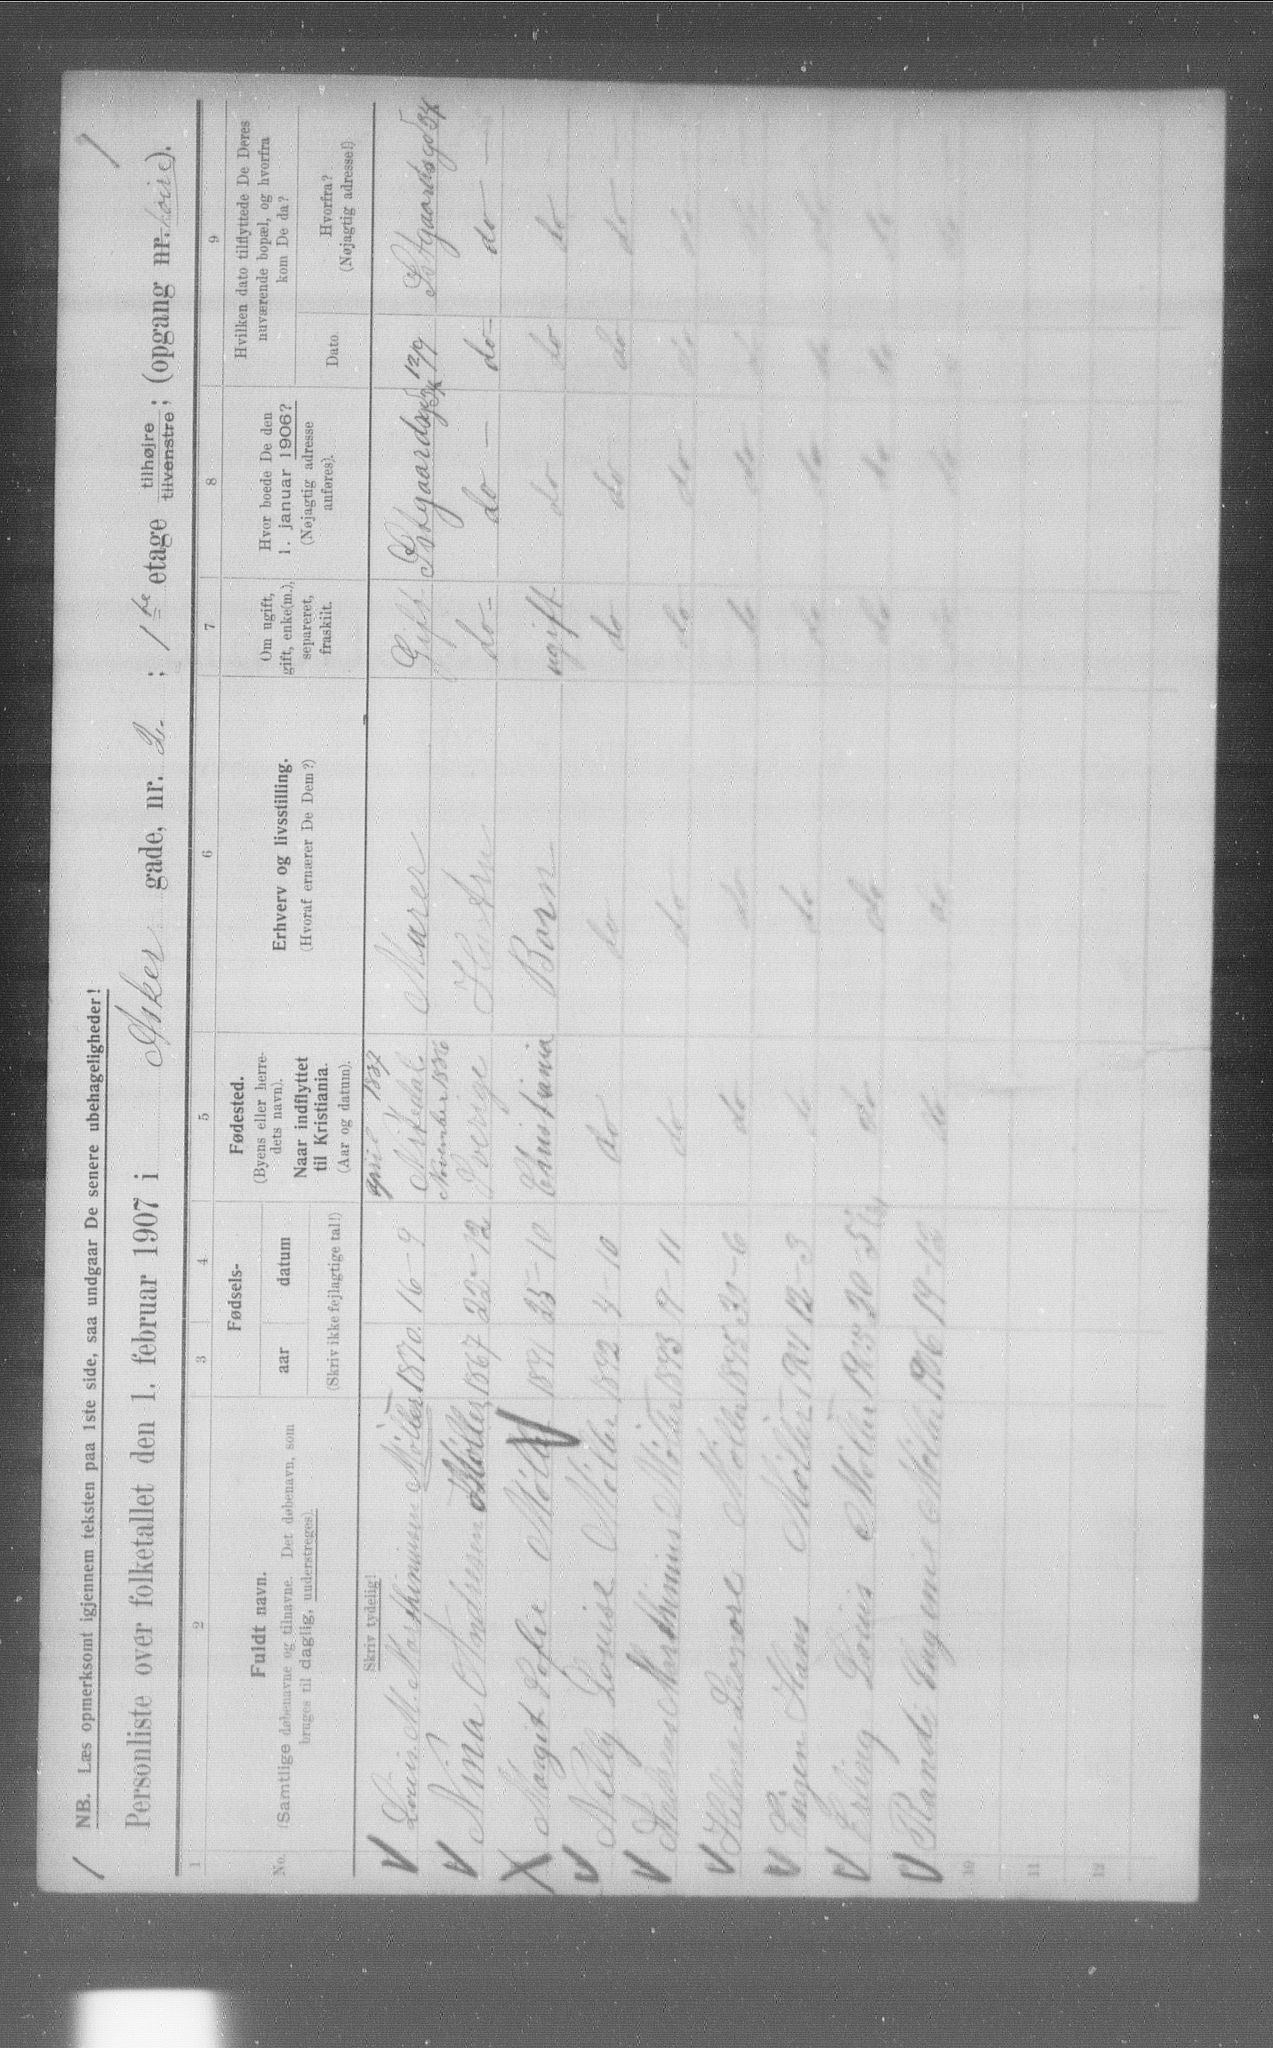 NB. Læs opmerksomt igjennem teksten paa 1ste side, saa undgaar De senere ubehageligheder!
Personliste over folketallet den 1. februar 1907 i Asker gade, nr. 2. ; 1 te etage tilhøjre tilvenstre; (opgang nr.
1 2 3 4 5 6 7 8 9
No.
Fuldt navn.
(Samtlige døbenavne og tilnavne. Det døbenavn, som
bruges til daglig, understreges).
Fødsels-
aar datum
(Skriv ikke fejlagtige tal!)
Fødested.
(Byens eller herre-
dets navn).
Naar indflyttet
til Kristiania.
(Aar og datum).
Erhverv og livsstilling.
(Hvoraf ernærer De Dem?)
Om ugift,
gift, enke(m.),
separeret,
fraskilt.
Hvor boede De den
1. januar 1906?
(Nøjagtig adresse
anføres).
Hvilken dato tilflyttede De Deres
nuværende bopæl, og hvorfra
kom De da?
Dato.
Hvorfra?
(Nøjagtig adresse!)
Skriv tydelig!
Louis M. Møller 1870 16-9 Murer Gift
Nina Andresen Møller 1867 22-12 Sverige Hustru do- do- do- do-
Margit Sofie Møller 1891 25-10 Christiania Børn ugift do do do
Nelly Louise Møller 1892 do do do do do do
Andreas Marthinius Møller 1893 9-11 do do do do do do
Hilma Leonore Møller 1895 do do do do do do
Hans Møller 12-3 do do do do do do
Erling Louis Møller do do do do do do
Randi Møller 1906 do do do do do do
10
11
12